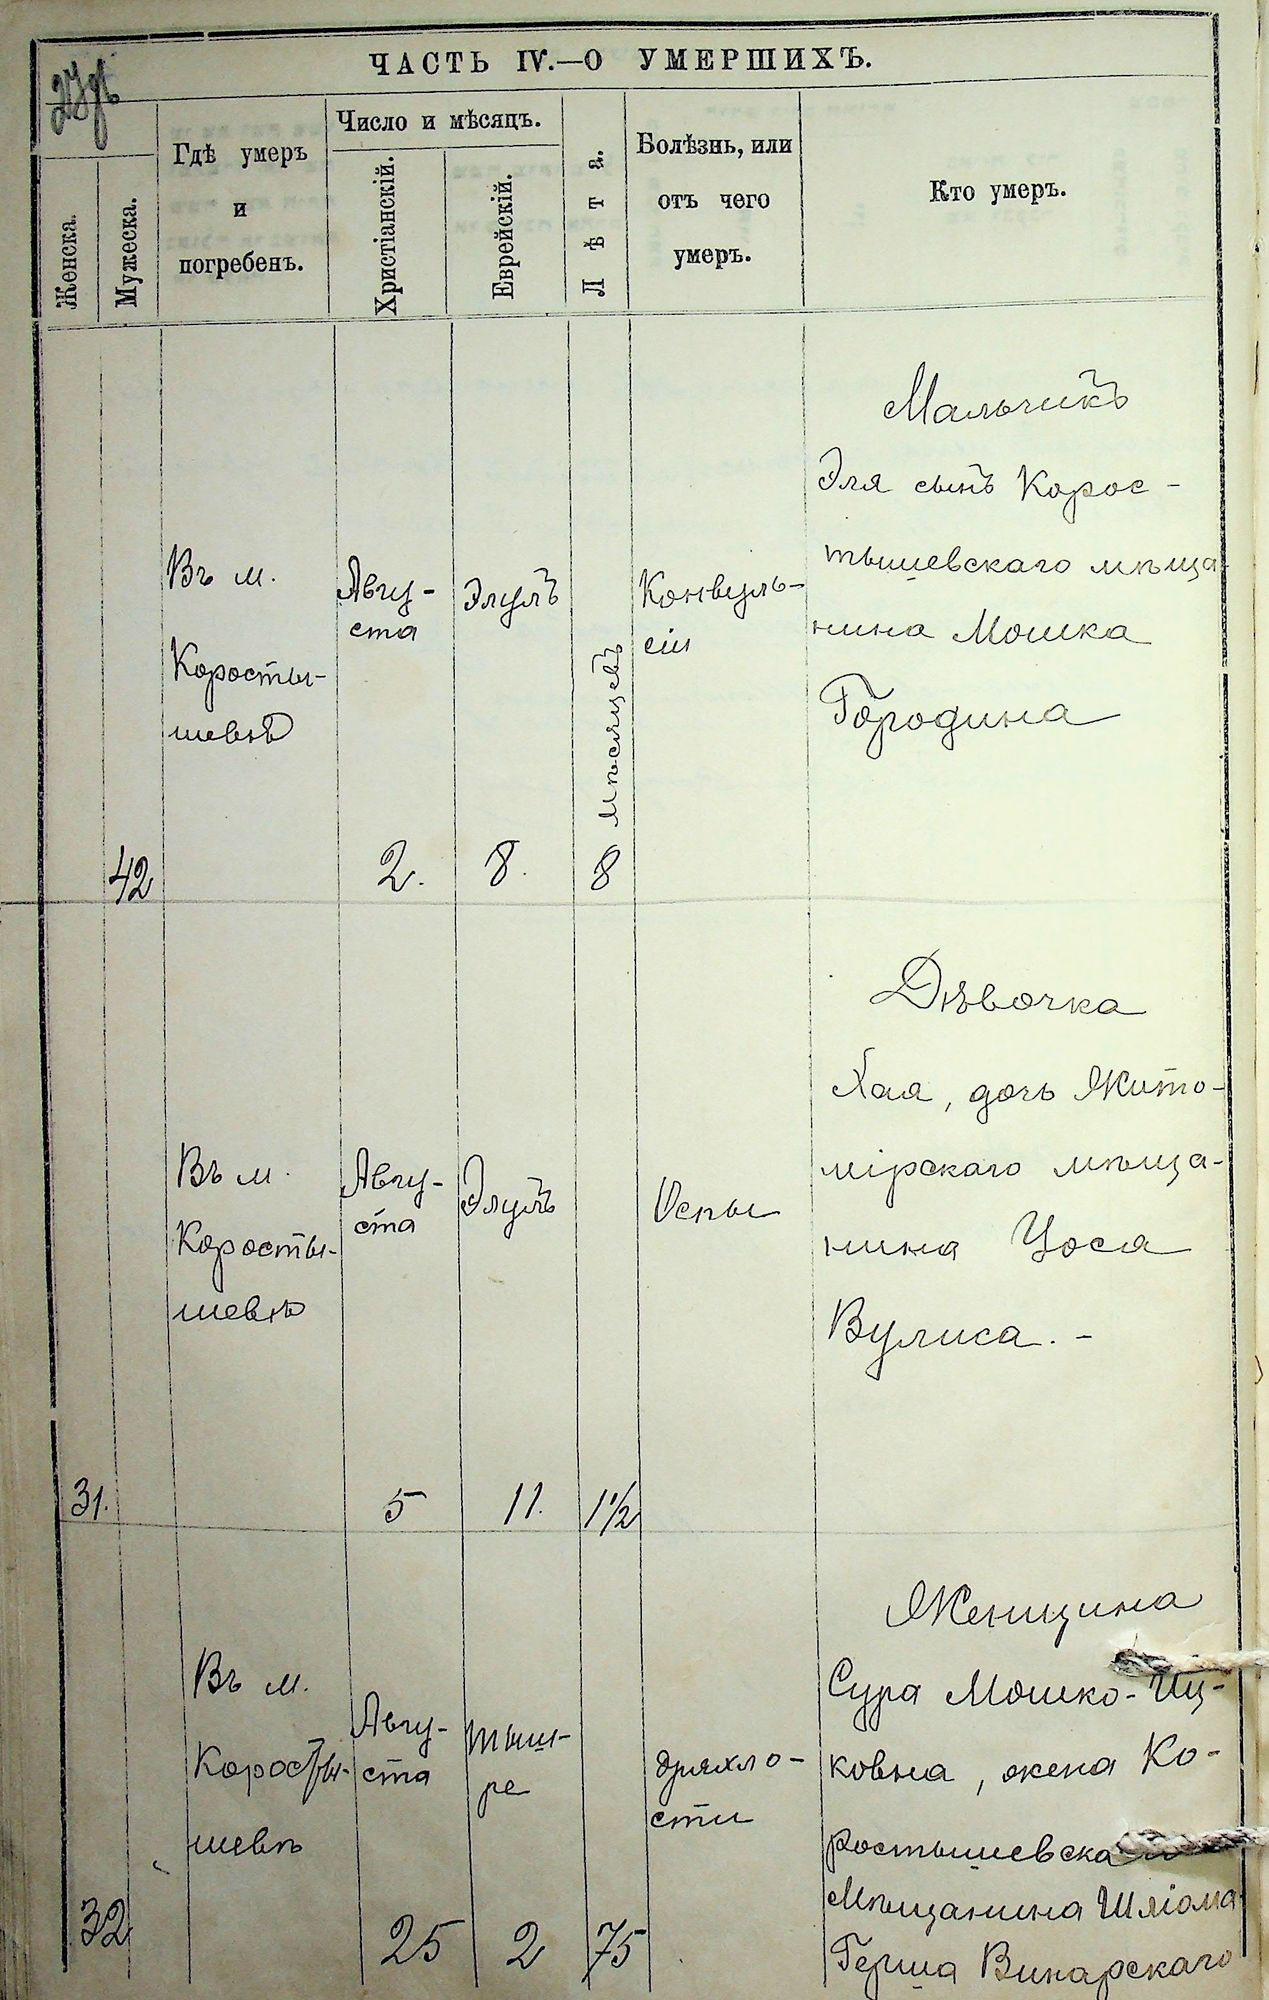 ЧАСТЬ IV.—О УМЕРШИХЪ.
Женска.
Мужеска.
Гдѣ умеръ
и
погребенъ.
Число и мѣсяцъ.
Христіанскій.
Еврейскій.
Лѣта.
Болѣзнь, или
отъ чего
умеръ.
Кто умеръ.
42
Въ м.
Коросты-
шевѣ
Авгу-
ста
2.
Элулъ
8.
8 мѣсяцевъ
Конвуль-
сіи
Мальчикъ
Эля сынъ Корос-
тышевскаго мѣща-
нина Мошка
Городина
31.
Въ м.
Коросты-
шевѣ
Авгу-
ста
5
Элулъ
11.
1 1/2
Оспы
Дѣвочка
Хая, дочь Жито-
мірскаго мѣща-
нина Іоса
Вулиса. -
32
Въ м.
Коросты-
шевѣ
Авгу-
ста
25
тыш-
ре
2
75
дряхло-
сти
Женщина
Сура Мошко-Иц-
ковна, жена Ко-
ростышевска
Мѣщанина Шліома
Герша Винарскаго